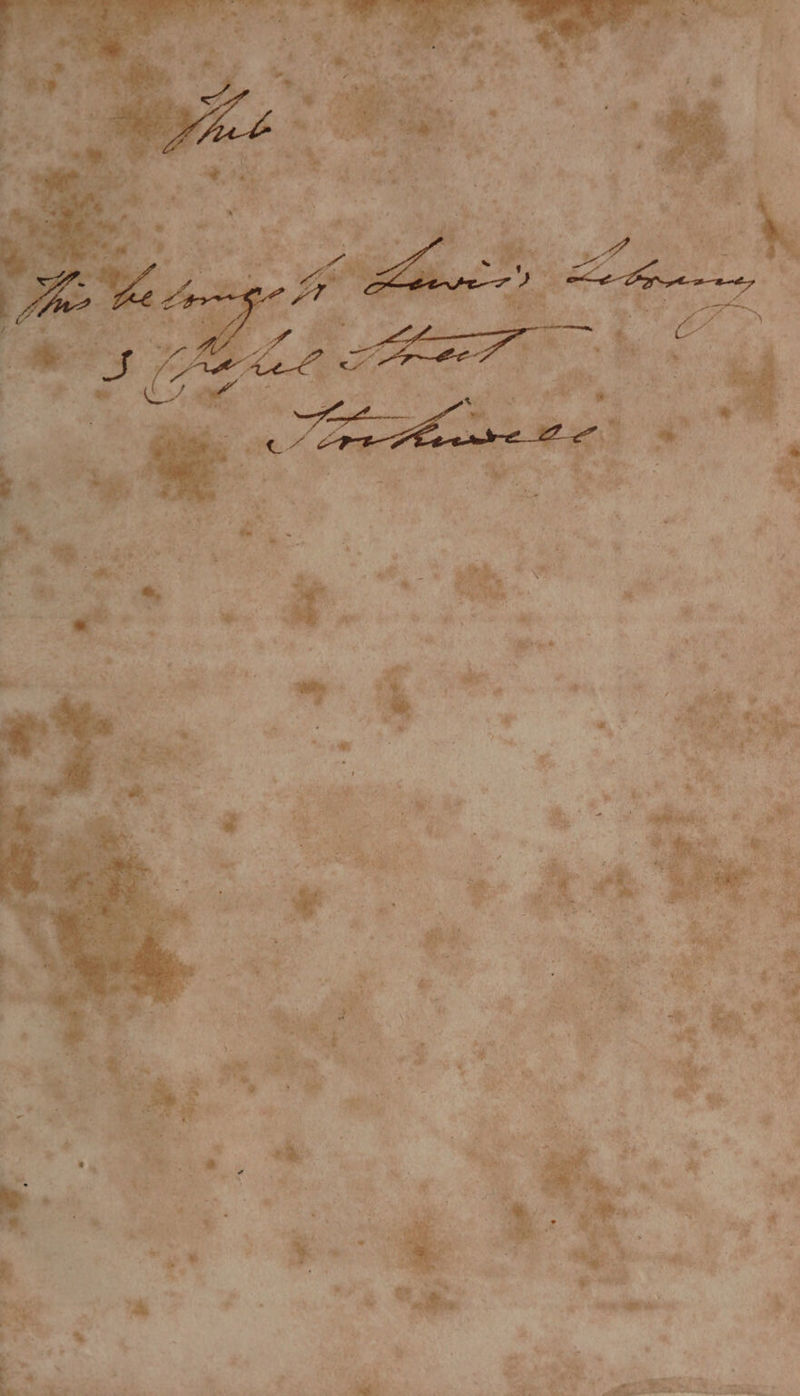 This belongs to Lewis's Library
5 Chapel Street
Stockwell